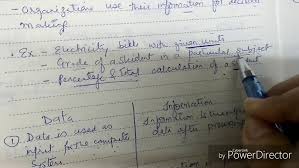 - Organizations use their information for decision
making.
Ex - Electricity bills with given units
- Grade of a student in a particular subject
- Percentage & total calculation of a
Data
Information
① Data is used as
input for the computer
System.
Information is the
data after
PowerDirector